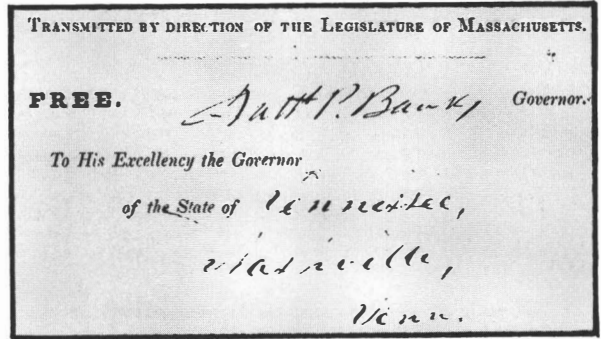 TRANSMITTED BY DIRECTION OF THE LEGISLATURE OF MASSACHUSETTS.
FREE. Natt P. Banks, Governor.
To His Excellency the Governor
of the State of Tennessee,
Nashville,
Tenn.